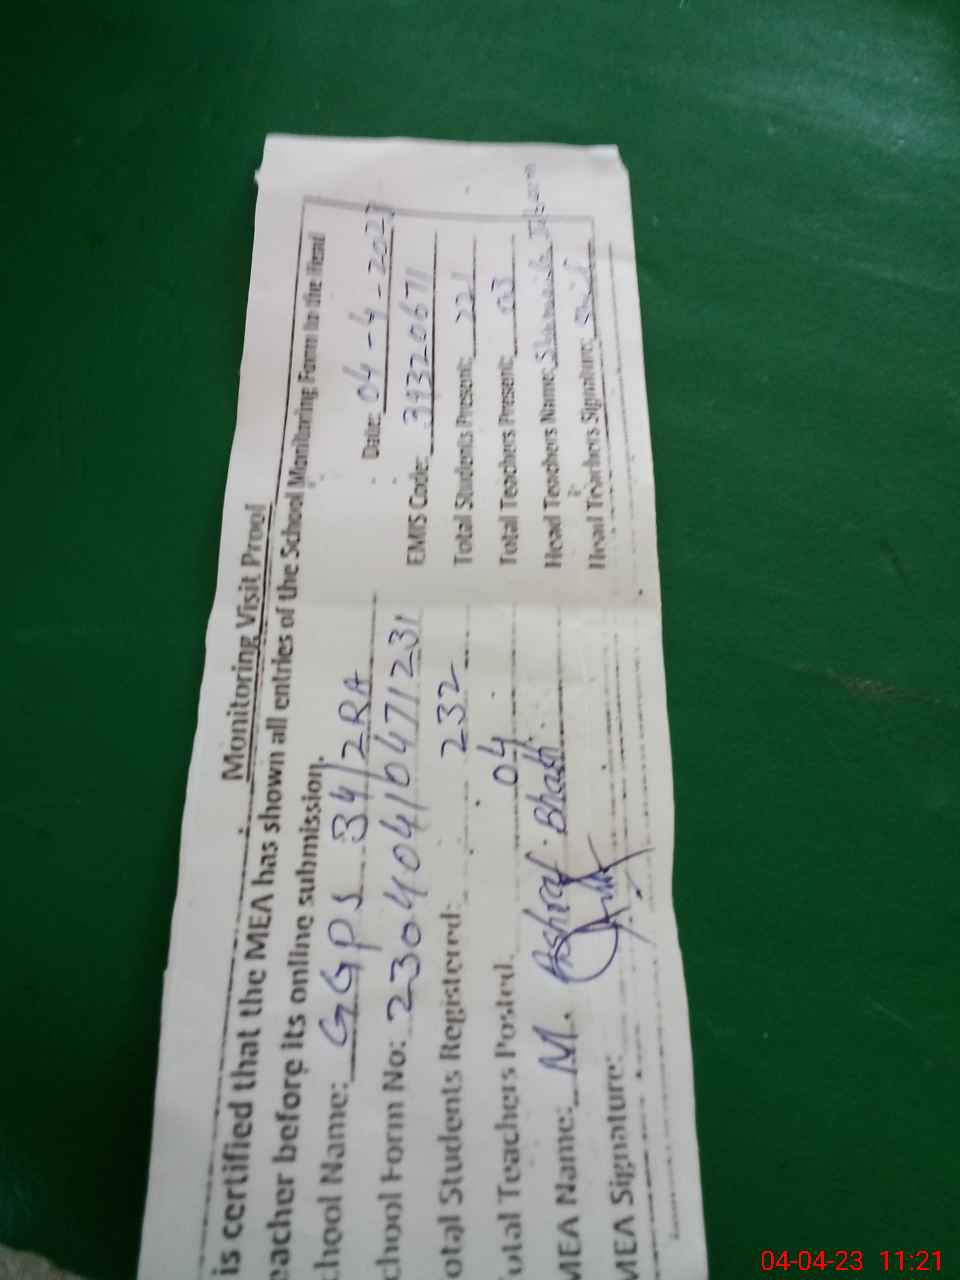 Monitoring Visit Proof
is certified that the MEA has shown all entries of the School Monitoring Form to the Head
eacher before its online submission.
chool Name: GGPS 34/2RA Date: 04-4-2023
chool Form No: 23040410471231 EMIS Code: 39320671
otal Students Registered: 232 Total Students Present: 221
otal Teachers Posted. 04 Total Teachers Present: 03
MEA Name: M. Ashraf Bhatti Head Teachers Name:
MEA Signature: Head Teachers Signature:
04-04-23 11:21